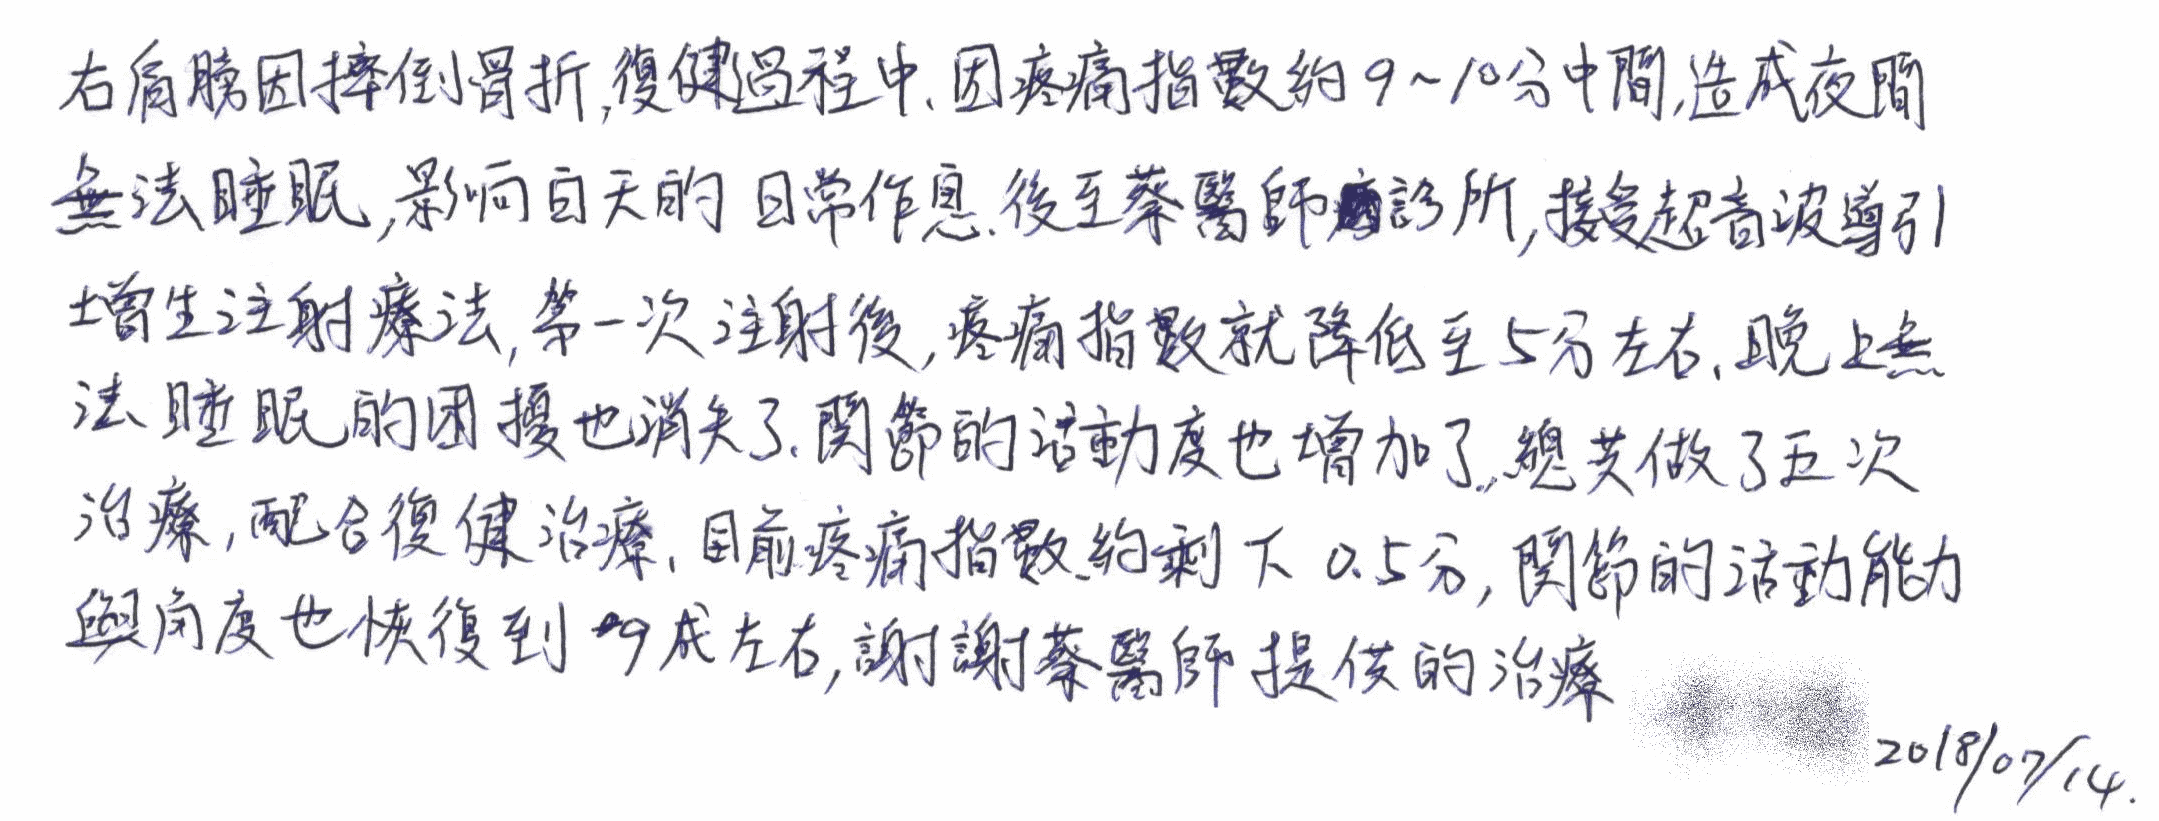 右肩膀因摔倒骨折,復健過程中、因疼痛指數約9~10分中間,造成夜間
無法睡眠,影响白天的日常作息.後至蔡醫師診所,接受超音波導引
增生注射療法,第一次注射後,疼痛指數就降低至5分左右、晚上無
法睡眠的困擾也消失了.関節的活動度也增加了,總共做了五次
治療,配合復健治療、目前疼痛指數約剩下0.5分,関節的活動能力
與角度也恢復到9成左右,謝謝蔡醫師提供的治療
2018/07/14.